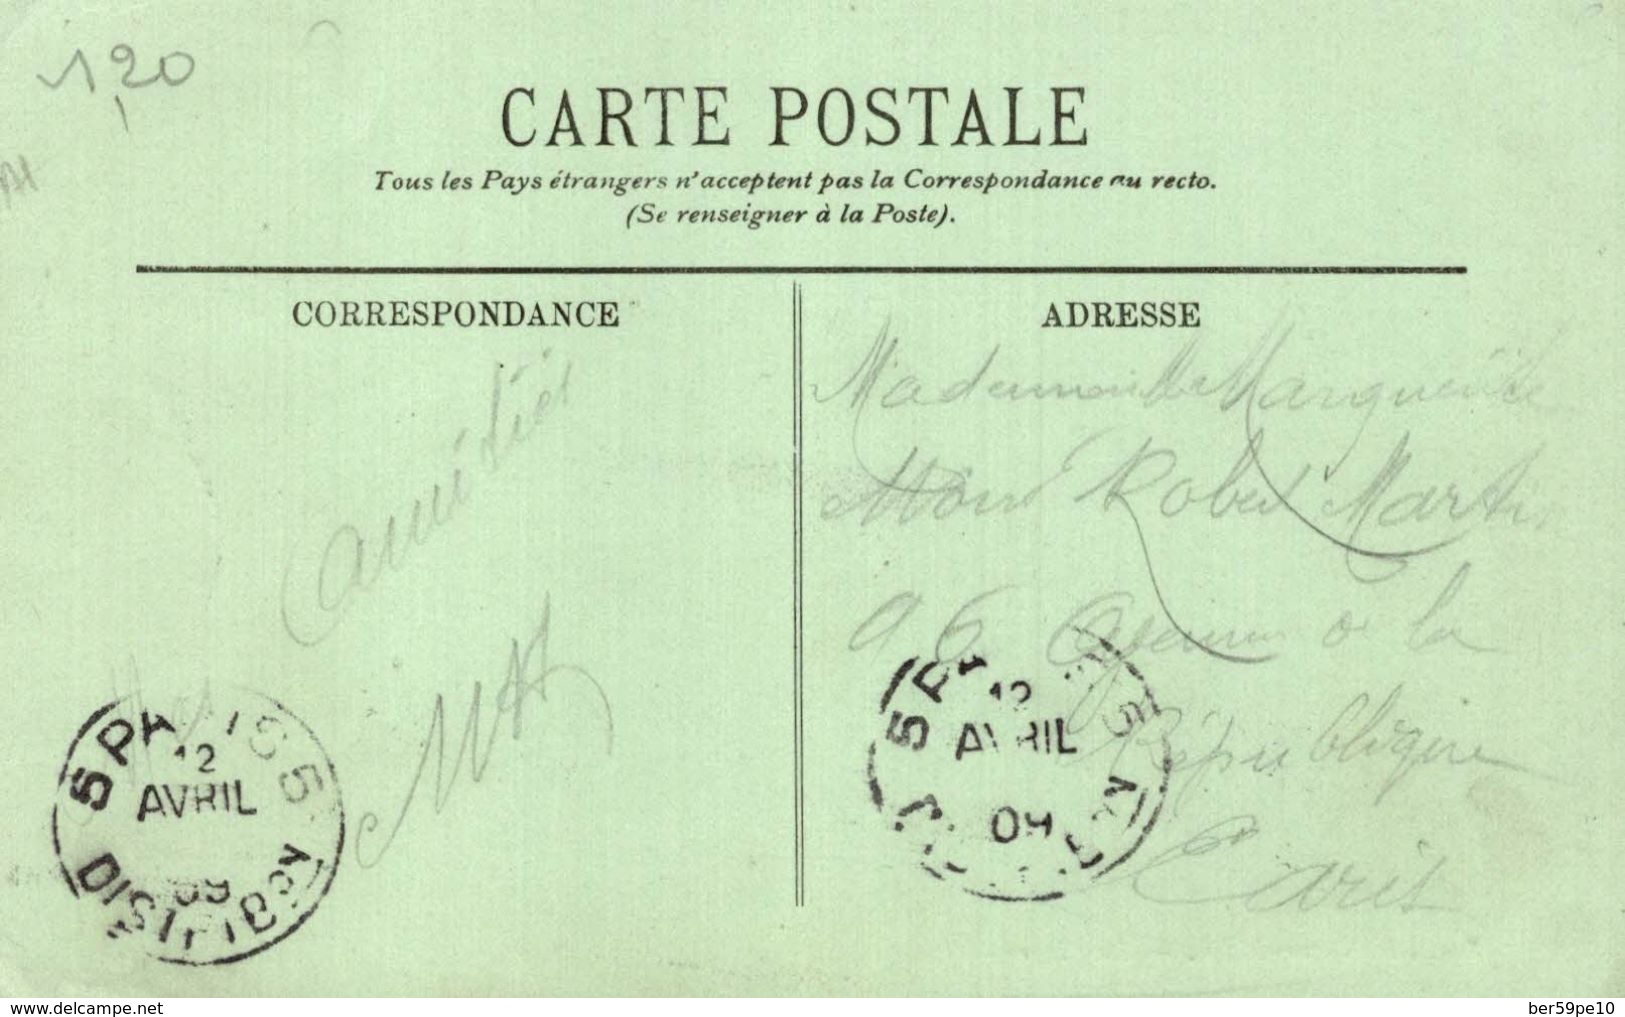 120
CARTE POSTALE
Tous les Pays étrangers n'acceptent pas la Correspondance au recto.
(Se renseigner à la Poste).
CORRESPONDANCE
amitiés
ADRESSE
Mademoiselle Marguerite
Robert Martin
96 Avenue de la
République
Paris
PARIS 55
12
AVRIL
09
DISTRIBON
PARIS
12
AVRIL
09
www.delcampe.net
ber59pe10